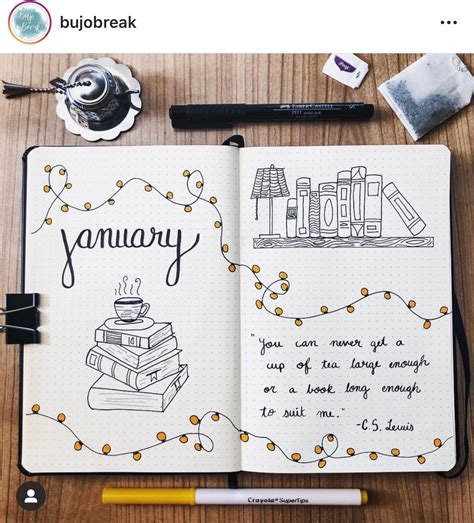 bujobreak
FABER-CASTELL
january
"You can never get a
cup of tea large enough
or a book long enough
to suit me."
-C.S. Lewis
Crayola SuperTips